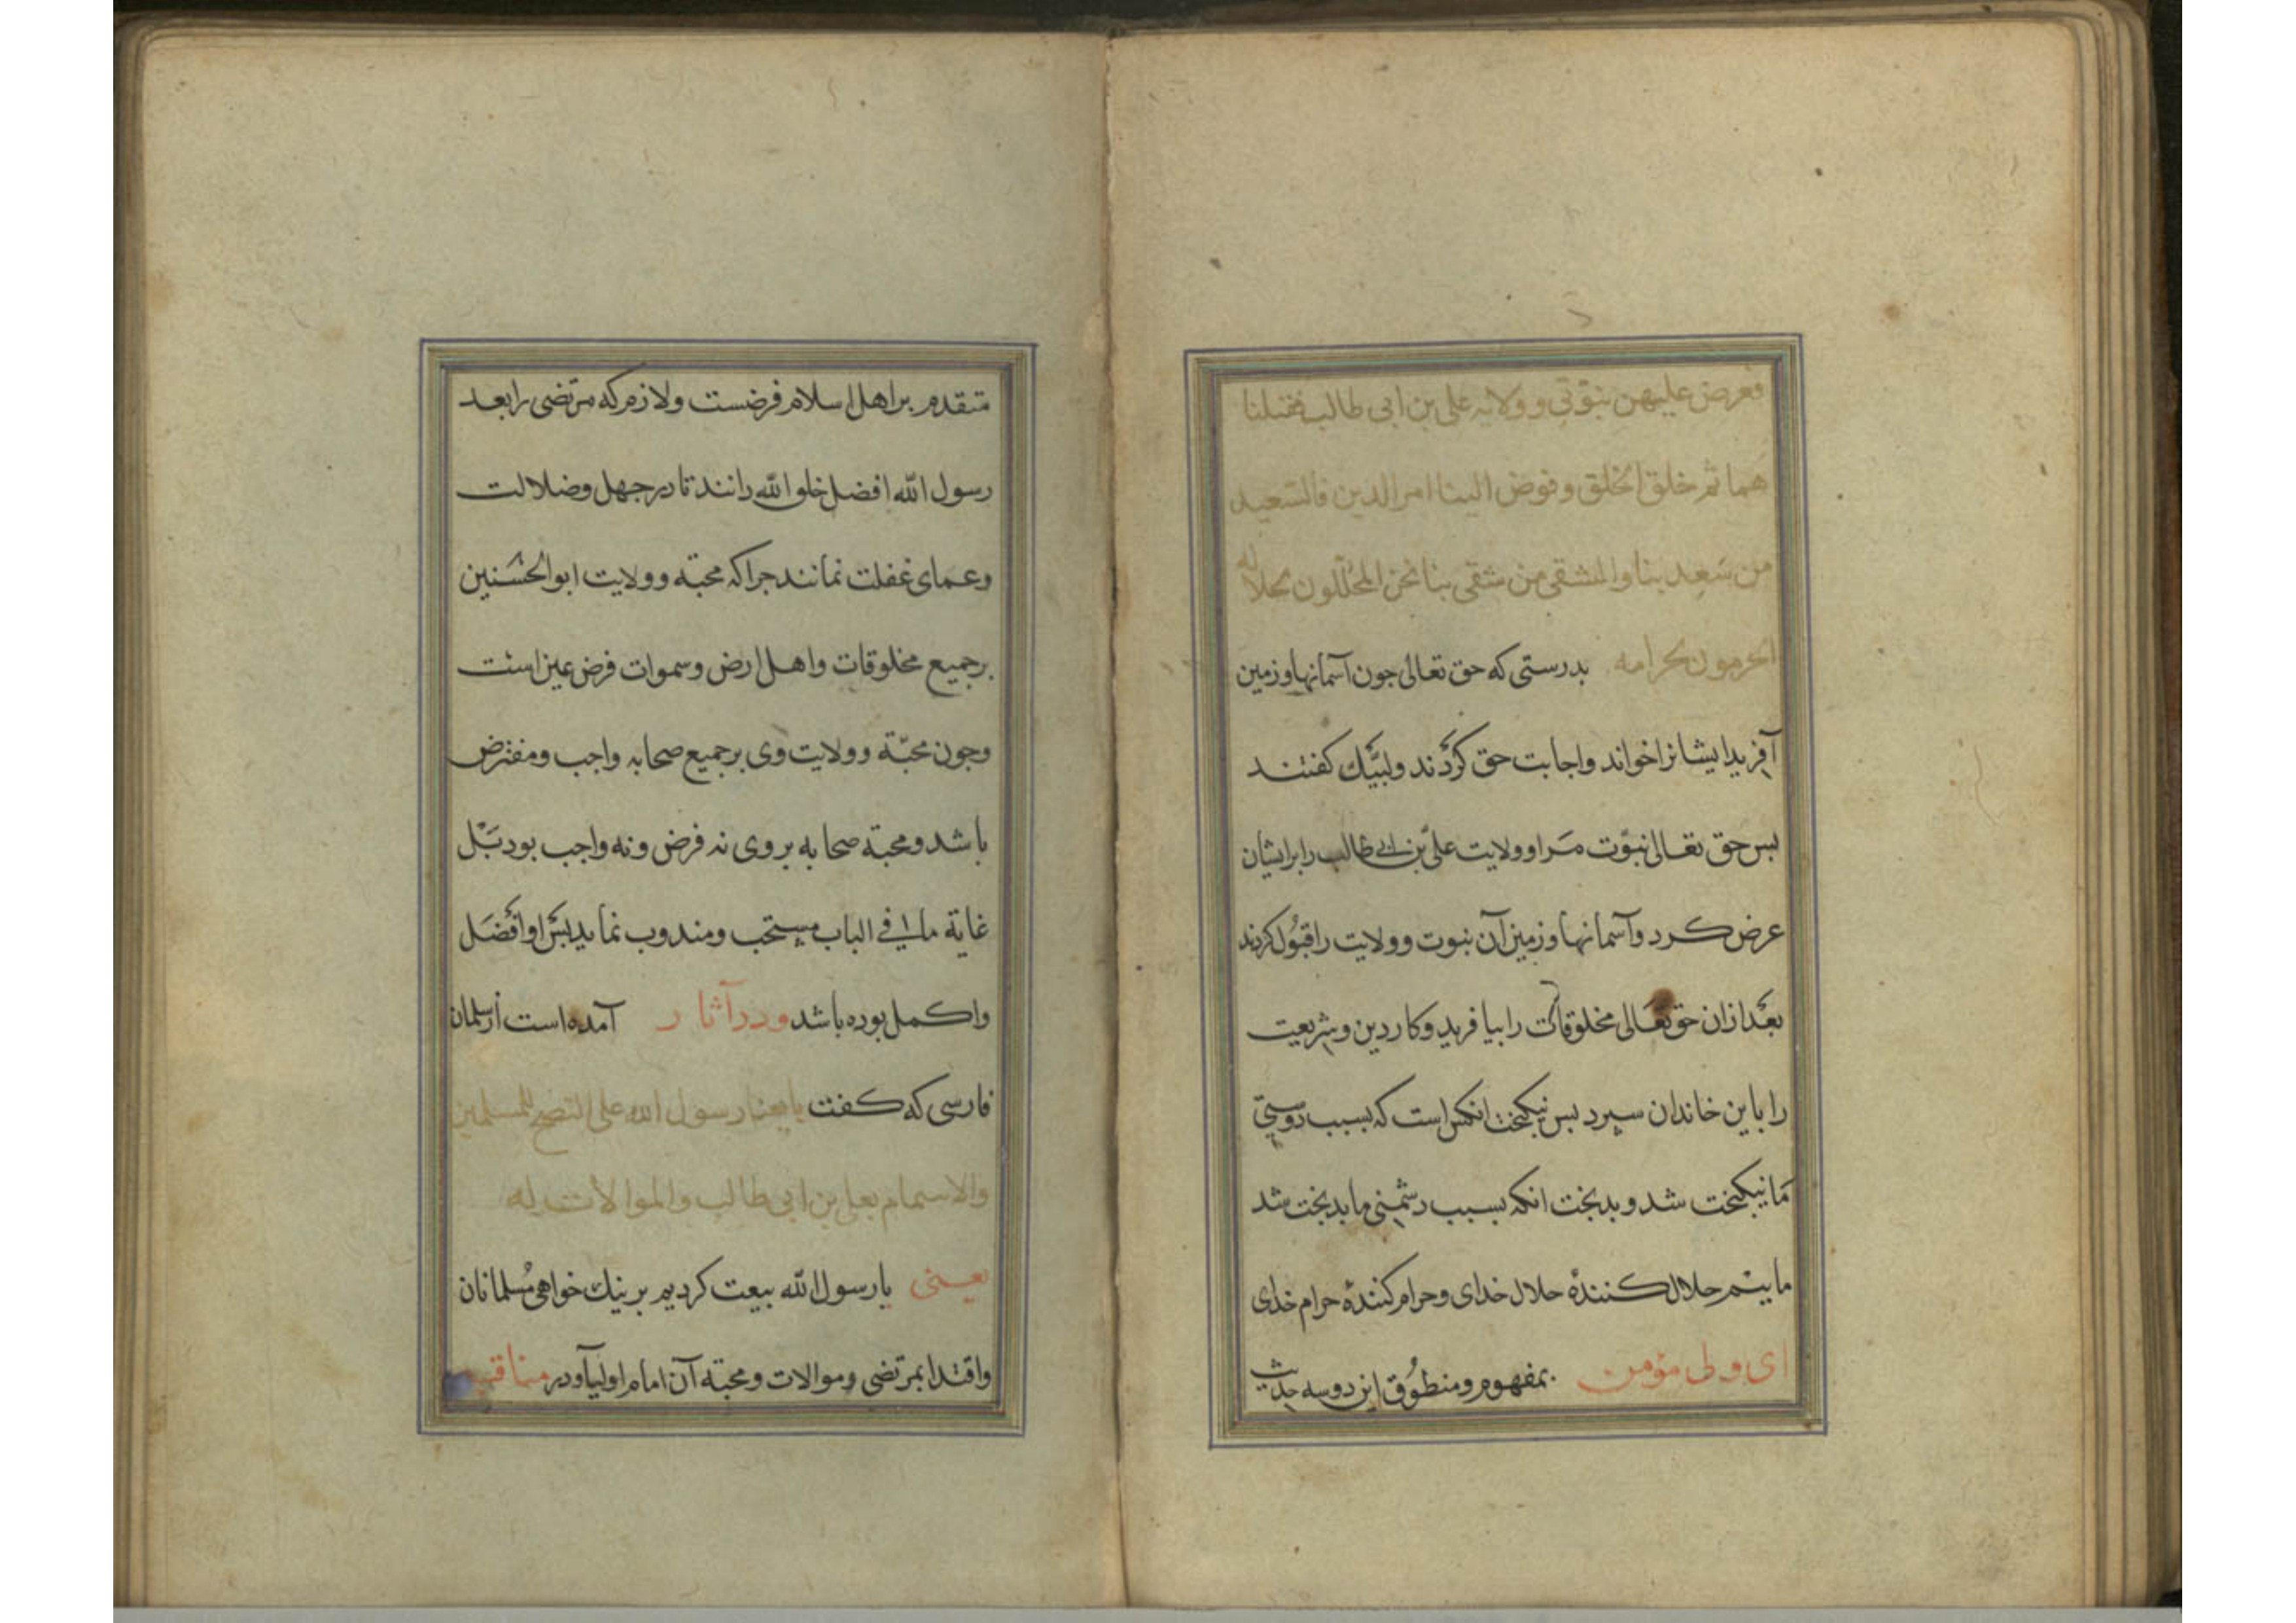 فعرض علیهن نبوّتی وولایه علی بن ابی طالب فقبلنا
هما ثم خلق الخلق وفوض الینا امر الدین فالسّعید
من سَعِد بنا والشقی من شقی بنا نحن المحلّلون لحلاله
المحرمون لحرامه بدرستی که حق تعالی جون آسمانها وزمین
آفرید ایشانرا خواند واجابت حق کردند ولبیّک کفتند
بس حق تعالی نبوّت مَرا وولایت علیّ بن ابی طالب را برایشان
عرض کرد وآسمانها وزمین آن نبوت وولایت را قبُول کردند
بعْد ازان حق تعَالی مخلوقات را بیافرید وکار دین وشریعت
را باین خاندان سپرد بس نیکبخت انکس است که بسبب دوستیِ
مَا نیکبخت شد وبدبخت انکه بسبب دشمنیِ ما بدبخت شد
ماییم حلال کنندهٔ حلال خدای وحرام کنندهٔ حرام خدای
ای ولی مؤمن بمفهوم ومنطوُق این دوسه حدیث
متقدم براهل اسلام فرضست ولازم که مرتضی را بعد
رسول الله افضل خلق الله دانند تا در جهل وضلالت
وعمای غفلت نمانند جراکه محبّه وولایت ابوالحسَنین
برجمیع مخلوقات واهل ارض وسموات فرض عین است
وجون محبّة وولایت وی برجمیع صحابه واجب ومفترض
باشد ومحبّة صحابه بروی نه فرض ونه واجب بود بَلْ
غایة ما فی الباب مستحب ومندوب نماید بسَ او افْضَل
واکمل بوده باشد ودر آثار آمده است از سلمان
فارسی که کفت بایعنا رسول الله علی النصح للمسلمین
والاسمام بعلی بن ابی طالب والموالات له
یعنی بارسول الله بیعت کردیم بر نیک خواهی مُسلمانان
واقتدا بمرتضی وموالات ومحبّة آن امام اولیآ ودر مناقب